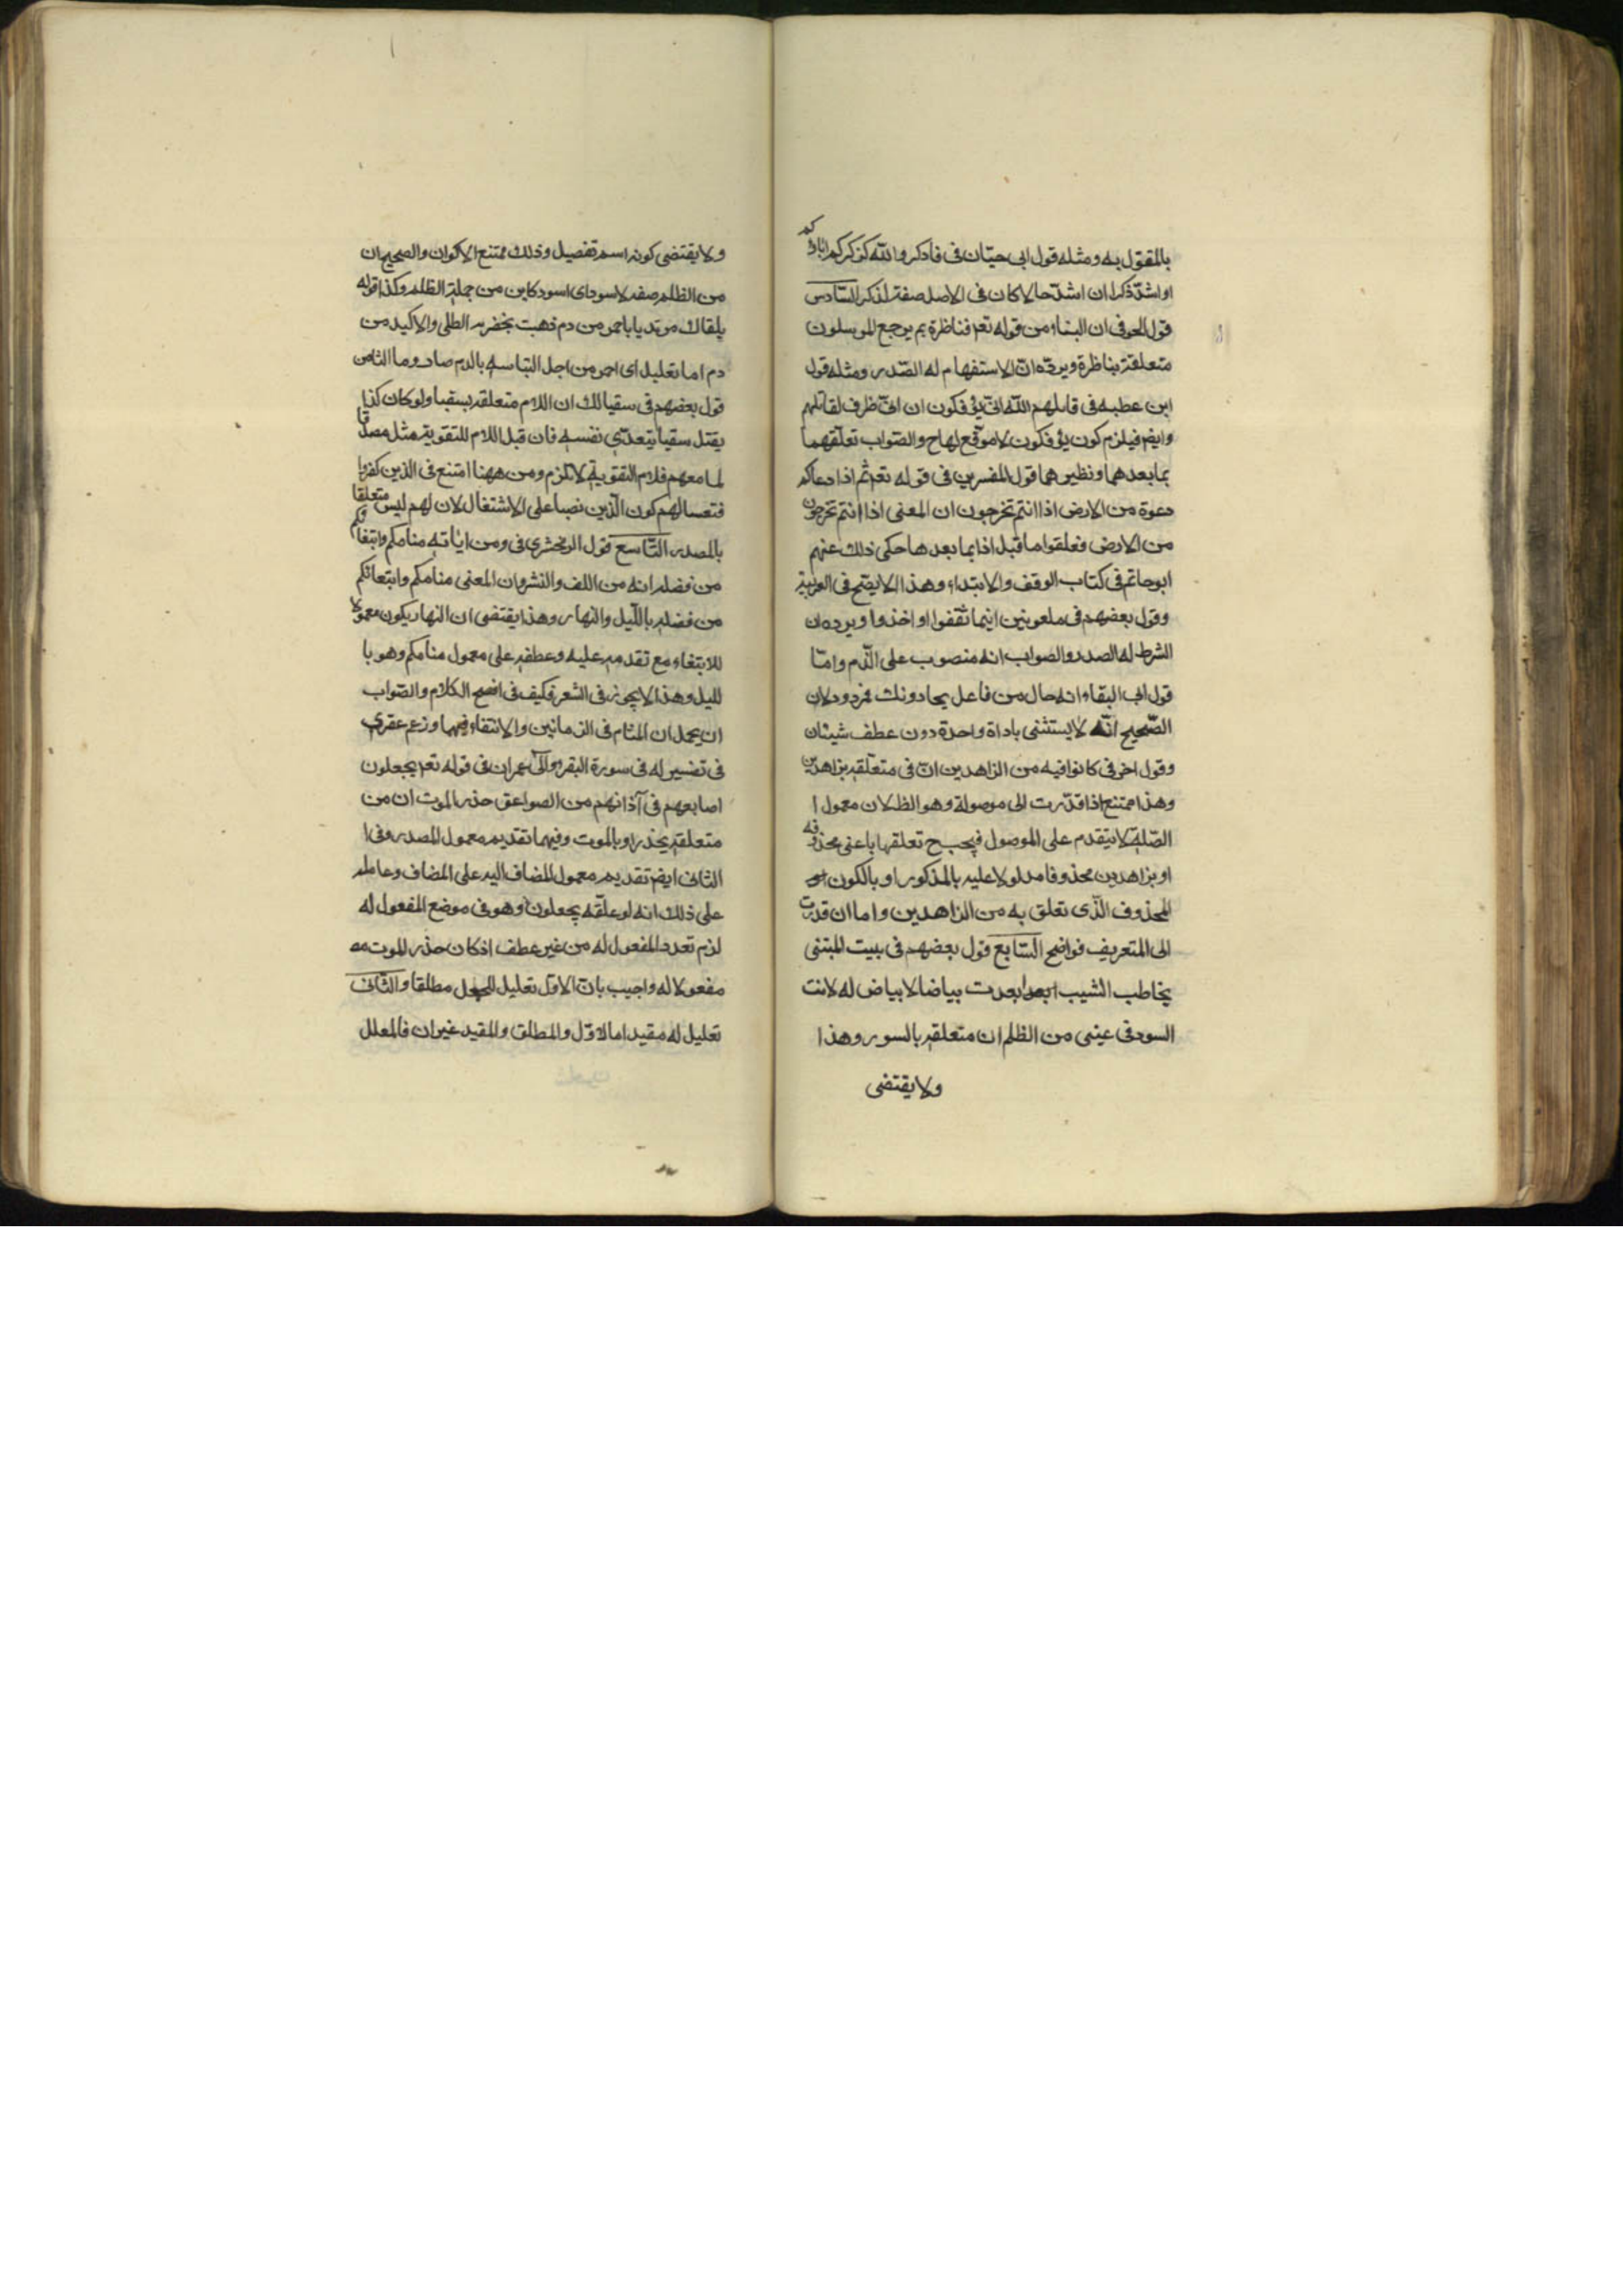 بالمقول به ومثله قول ابى حيّان فى فاذكروا الله كذكركم اباءكم
او اشدّ ذكرا ان اشدّ حالا كان فى الاصل صفة لذكر السّادس
قول الحوفى ان الباء من قوله تعم فناظرة بم يرجع المرسلون
متعلقة بناظرة ويردّه انّ الاستفهام له الصّدر ومثله قول
ابن عطيه فى قاتلهم اللّه انّى يؤفكون ان انّى ظرف لقاتلهم
وايضم فيلزم كون يؤفكون لا موقع لها ح والصّواب تعلّقهما
بما بعدهما ونظيرهما قول المفسرين فى قوله تعم ثم اذا دعاكم
دعوة من الارض اذا انتم تخرجون ان المعنى اذا انتم تخرجون
من الارض فعلقوا ما قبل اذا بما بعدها حكى ذلك عنهم
ابو حاتم فى كتاب الوقف والابتداء وهذا لا يصّح فى العربية
وقول بعضهم فى ملعونين اينما ثقفوا او اخذوا ويرده ان
الشرط له الصدر والصواب انه منصوب على الذّم وامّا
قول ابى البقاء انه حال من فاعل يجاورونك فمردود لان
الصّحيح انّه لا يستثنى باداة واحدة دون عطف شيئان
وقول اخر فى كانوا فيه من الزاهدين انّ فى متعلّقه بزاهدين
وهذا ممتنع اذا قدّرت ال موصولة وهو الظ لان معمول ا
الصّلة لا يتقدم على الموصول فيجب ح تعلقها باعنى محذوفه
او بزاهدين محذوفا مدلولا عليه بالمذكور او بالكون
المحذوف الّذى تعلق به من الزاهدين واما ان قدرت
ال للتعريف فواضح السّابع قول بعضهم فى بيت المتنبى
يخاطب الشيب ابعد ابعدت بياضا لا بياض له لانت
السود فى عينى من الظلم ان متعلقه بالسور وهذا
ولا يقتضى
ولا يقتضى كونه اسم تفصيل وذلك ممتنع الاكوان والصحيح ان
من الظلم صفه لاسود اى اسود كاين من جملة الظلم وكذا قوله
يلقاك مرتديا باحمر من دم ذهبت بخضره الطلى والاكبد من
دم اما تعليل اى احمر من اجل التباسه بالدم صادوما الثامن
قول بعضهم فى سقيا لك ان اللام متعلقه بسقيا ولو كان كذا
يقتل سقيا يتعدّى نفسه فان قبل اللام للتقوية مثل مصدقا
لما معهم فلام التقوية لا تلزم ومن ههنا امتنع فى الذين كفروا
فتعسا لهم كون الّذين نصبا على الاشتغال لان لهم ليس متعلقا
بالمصدر التّاسع قول الزمخشرى فى ومن اياته منامكم وابتغاوكم
من فضله انه من اللف والنشر وان المعنى منامكم وابتغائكم
من فضله باللّيل والنهار وهذا يقتضى ان النهار يكون معمولا
للابتغاء مع تقدمه عليه وعطفه على معمول منامكم وهو با
لليل وهذا لا يجوز فى الشعر فكيف فى افصح الكلام والصّواب
ان يحمل ان المنام فى الزمانين والابتغاء فيهما وزعم عصرى
فى تفسير له فى سورة البقره وال عمران فى قوله تعم يجعلون
اصابعهم فى آذانهم من الصواعق حذر الموت ان من
متعلقه بحذر او بالموت وفيهما تقديم معمول المصدر وفى ا
الثانى ايضم تقديم معمول المضاف اليه على المضاف وحامله
على ذلك انه لو علّقه بيجعلون وهو فى موضع المفعول له
لزم تعدد المفعول له من غير عطف اذ كان حذر الموت مه
مفعولا له واجيب بانّ الاوّل تعليل للجعل مطلقا والثّانى
تعليل له مقيد اما الاوّل والمطلق والمقيد غيران فالمعلل